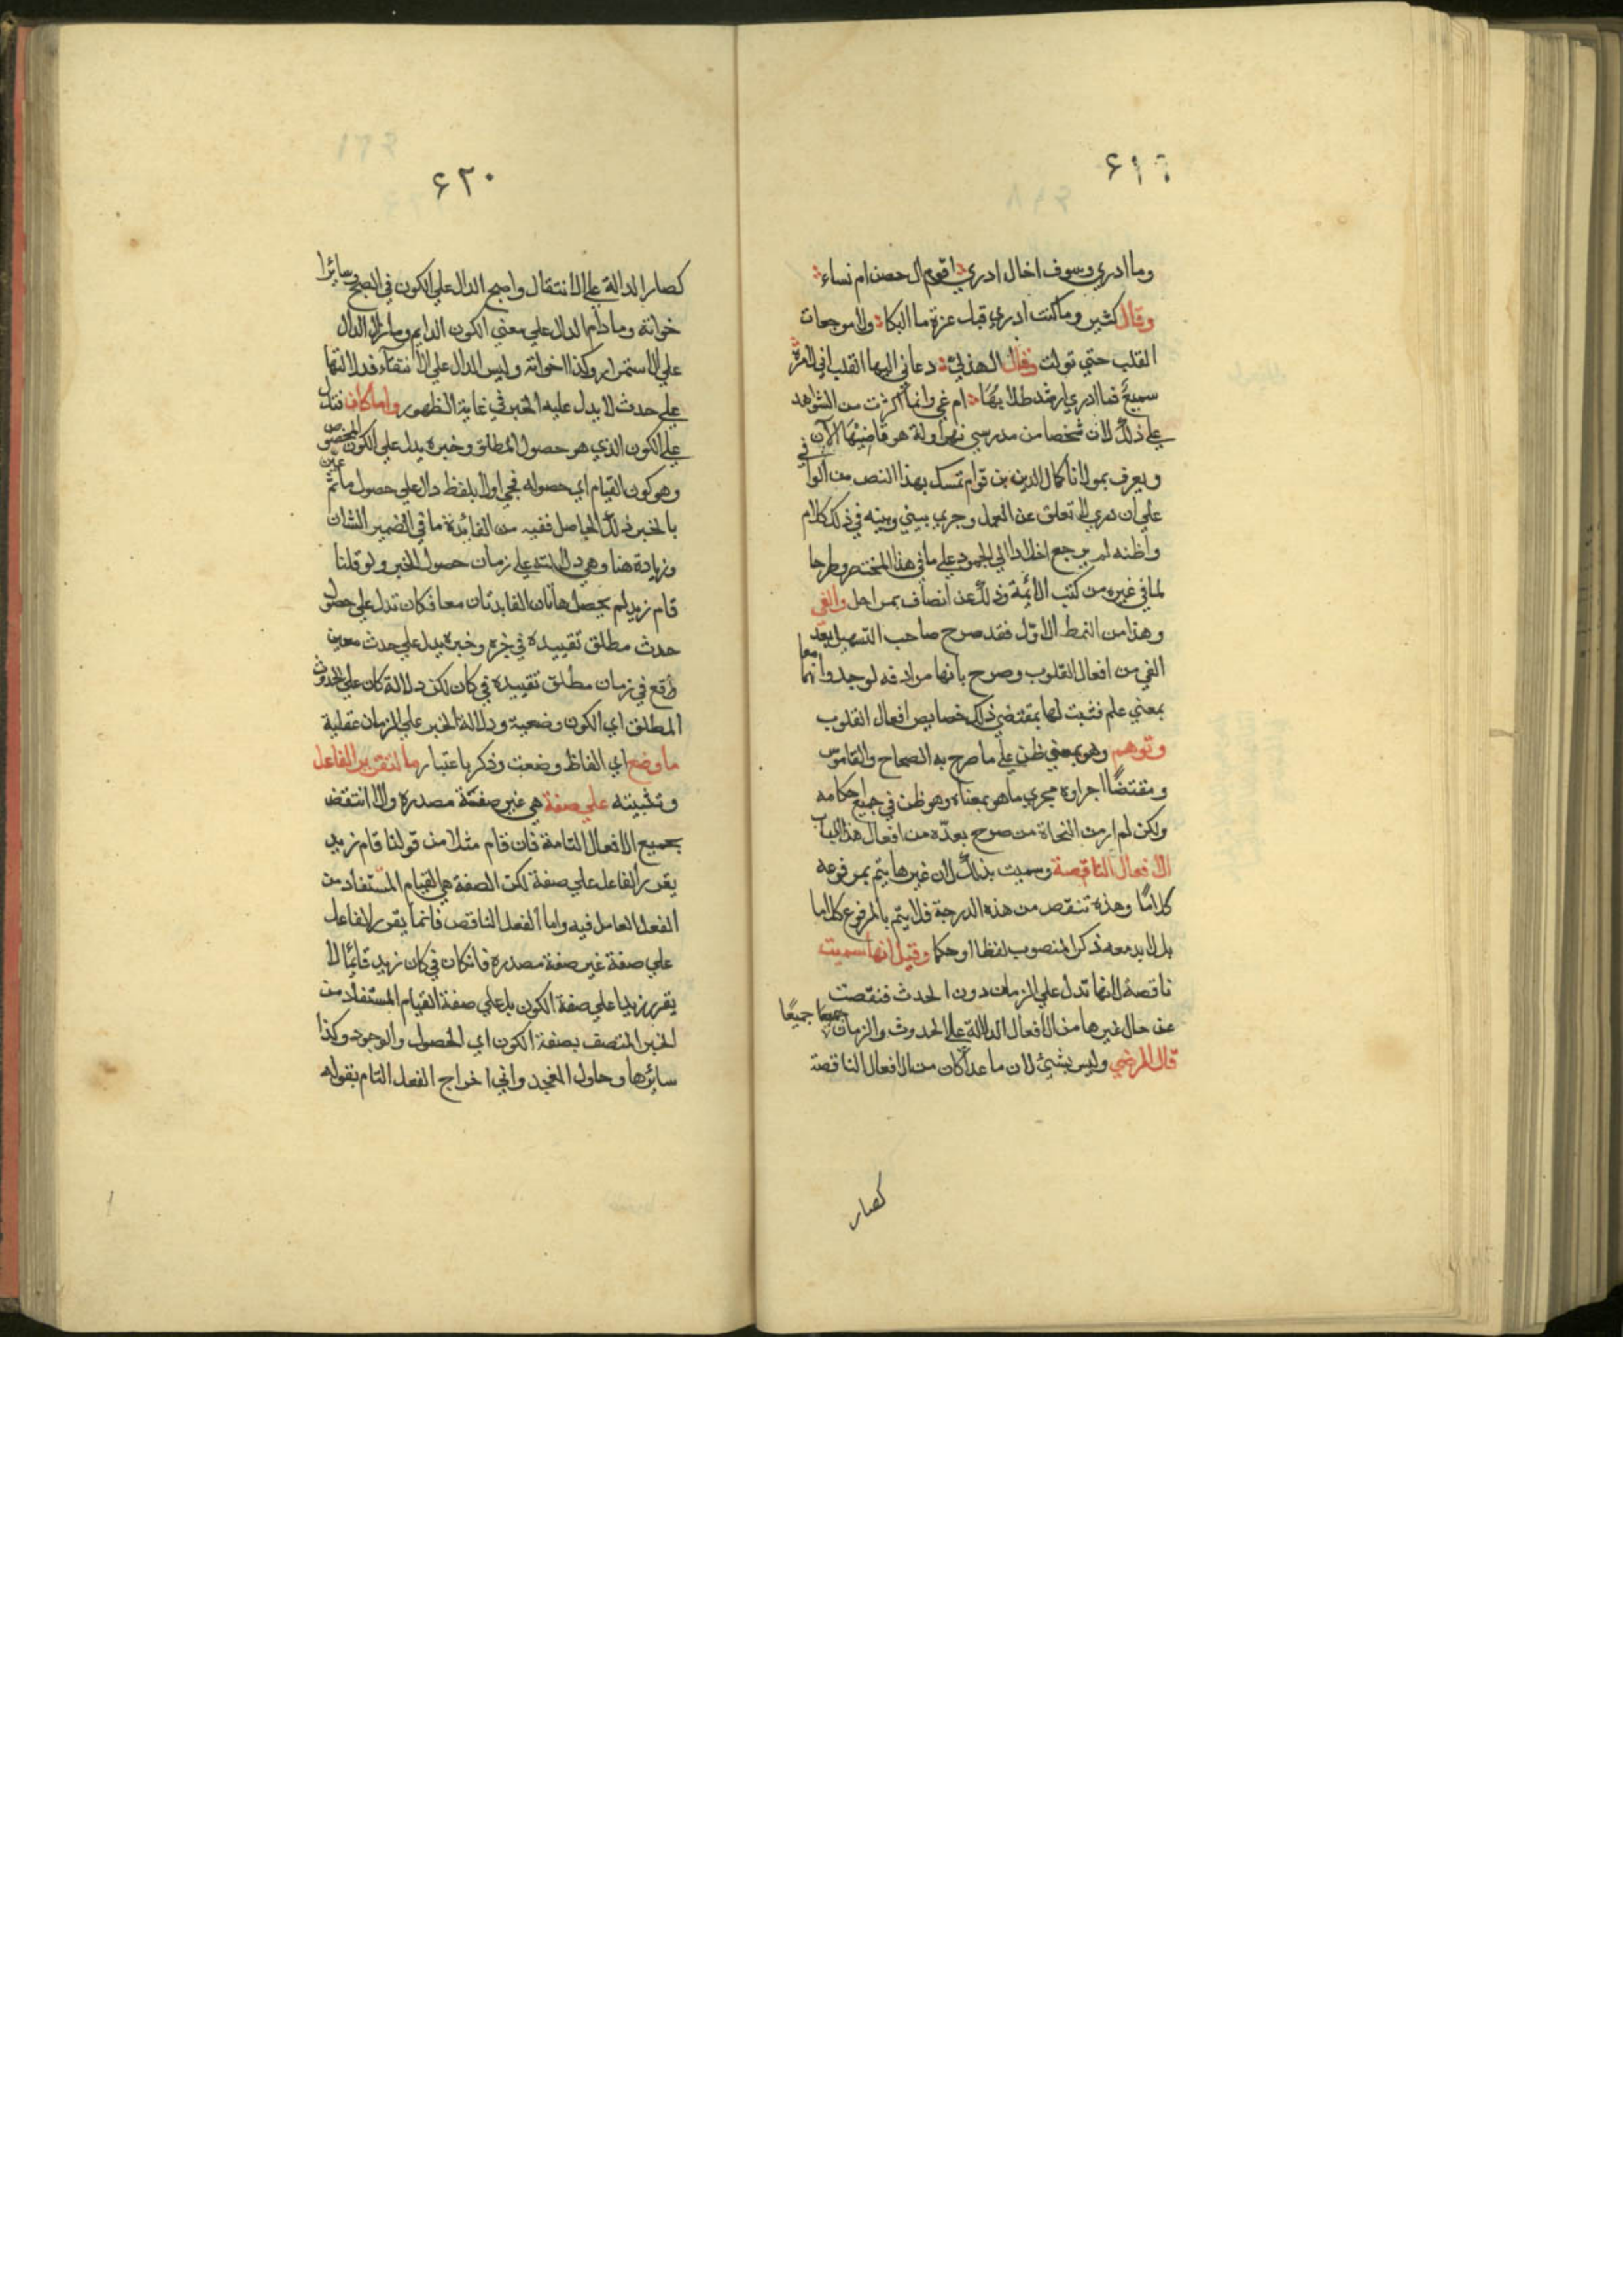 ۶۱۹
وما ادري وسوف اخال ادري اقوم ال حصن ام نساء
وقال كثير وما كنت ادري قبل عزة ما البكا ولا موجعات
القلب حتي تولت وقال الهذلي دعاني اليها القلب اني لامره
سميع فما ادري ارشد طلابها ام غي وانما اكثرت من الشواهد
علي ذلك لان شخصا من مدرسي هو قاضيها الآن
ويعرف بمولانا كمال الدين بن قوام تمسك بهذا النص من
علي ان دري لا تعلق عن العمل وجري بيني وبينه في ذلك كلام
واظنه لم يرجع اخلادا الي الجمود علي ما في هذا المختصر وطرحا
لما في غيره من كتب الأئمة وذلك عن انصاف بمراحل والفي
وهذا من النمط الاول فقد صرح صاحب التسهيل بعد
الفي من افعال القلوب وصرح بانها مرادفه لوجد وانهما معا
بمعني علم فثبت لها بمقتضي ذلك خصايص افعال القلوب
وتوهم وهو بمعني ظن علي ما صرح به الصحاح والقاموس
ومقتضا اجراوه مجري ما هو بمعناه وهو ظن في جميع احكامه
ولكن لم ار من النحاة من صرح بعده من افعال هذا الباب
الافعال الناقصة وسميت بذلك لان غيرها يتم بمرفوعه
كلاما وهذه تنقص من هذه الدرجة فلا يتم بالمرفوع كلاما
بل لا بد معه ذكر المنصوب لفظا او حكما وقيل انها سميت
ناقصة لانها تدل علي الزمان دون الحدث فنقصت
عن حال غيرها من الافعال الدالة علي الحدوث والزمان جميعا جميعا
قال المرضي وليس بشيئ لان ما عدا كان من الافعال الناقصة
كصار
۶۲۰
كصار الدالة علي الانتقال واصبح الدال علي الكون في الصبح وسائر
اخواته وما دام الدال علي معني الكون الدايم وما زال الدال
علي الاستمرار وكذا اخواته وليس الدال علي الانتفآء فدلالتها
علي حدث لا يدل عليه الخبر في غاية الظهور واما كان فتدل
علي الكون الذي هو حصول المطلق وخبره يدل علي الكون المخصوص
وهو كون القيام اي حصوله فجي اولا بلفظ دال علي حصول ما ثم عين
بالخبر ذلك الحاصل ففيه من الفائدة ما في الضمير الشان
وزيادة هنا وهي دلالته علي زمان حصول الخبر ولو قلنا
قام زيد لم يحصل هاتان الفايدتان معا فكان تدل علي حصول
حدث مطلق تقييده في خبره وخبره يدل علي حدث معين
وقع في زمان مطلق تقييده في كان لكن دلالة كان علي الحدوث
المطلق اي الكون وضعية ودلالة الخبر علي الزمان عقلية
ما وضع اي الفاظ وضعت وذكر باعتبار ما لتقرير الفاعل
وتثبيته علي صفة هي غير صفة مصدره والا انتقض
بجميع الافعال التامة فان قام مثلا من قولنا قام زيد
يقرر الفاعل علي صفة لكن الصفة هي القيام المستفاد من
الفعل العامل فيه واما الفعل الناقص فانما يقرر الفاعل
علي صفة غير صفة مصدره فان كان في كان زيد قائما لا
يقرر زيدا علي صفة الكون بل علي صفة القيام المستفاد من
الخبر المتصف بصفة الكون اي الحصول والوجود وكذا
سائرها وحاول الغجدواني اخراج الفعل التام بقوله